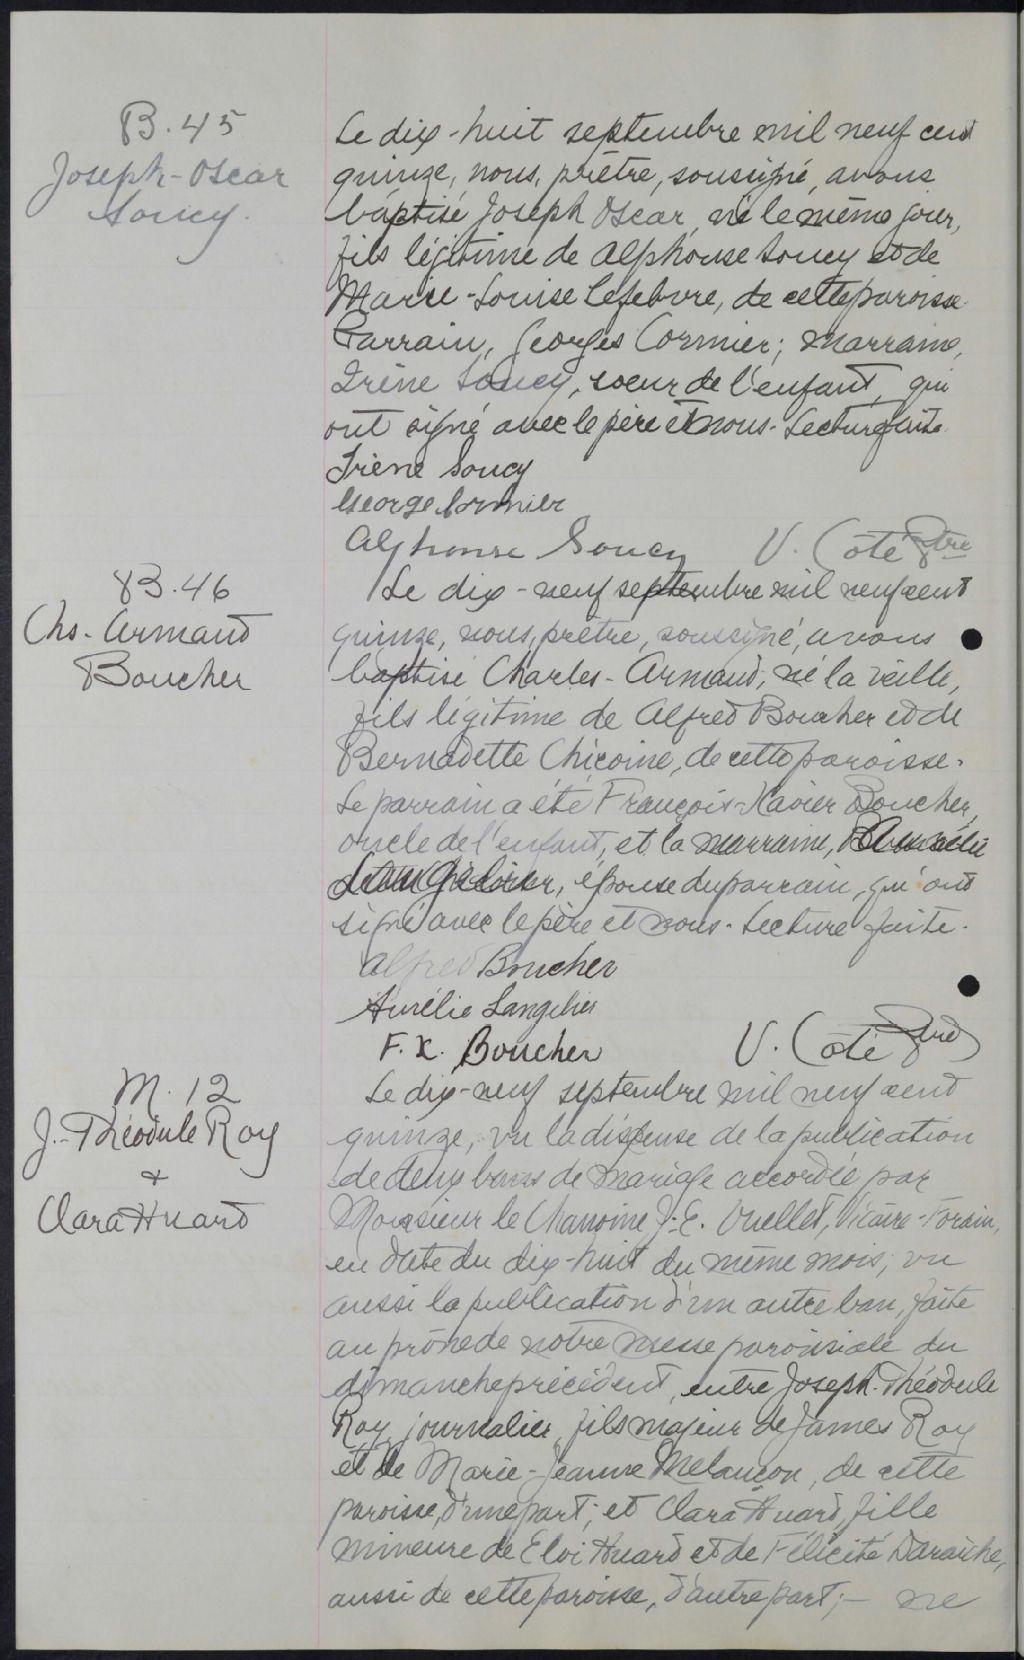 B. 45
Joseph-Oscar
Soucy.
Le dix-huit septembre mil neuf cent
quinze, nous, prêtre, soussigné, avons
baptisé Joseph Oscar, né le même jour,
fils légitime de Alphonse Soucy et de
Marie-Louise Lefebvre, de cette paroisse.
Parrain, Georges Cormier; marraine,
Irène Soucy, soeur de l'enfant, qui
ont signé avec le père et nous. Lecture faite.
Irène Soucy
George Cormier
Alphonse Soucy V. Côté Ptre
B. 46
Chs. Armand
Boucher
Le dix-neuf septembre mil neuf cent
quinze, nous, prêtre, soussigné, avons
baptisé Charles-Armand, né la veille,
fils légitime de Alfred Boucher et de
Bernadette Chicoine, de cette paroisse.
Le parrain a été François-Xavier Boucher,
oncle de l'enfant, et la marraine,
épouse du parrain, qui ont
signé avec le père et nous. Lecture faite.
Alfred Boucher
Aurélie Langelier
F. X. Boucher V. Côté Ptre
M. 12
J.-Théodule Roy
&
Clara Huard
Le dix-neuf septembre mil neuf cent
quinze, vu la dispense de la publication
de deux bans de mariage accordée par
Monsieur le Chanoine J.-E. Ouellet, Vicaire-Forain,
en date du dix-huit du même mois; vu
aussi la publication d'un autre ban, faite
au prône de notre messe paroissiale du
dimanche précédent, entre Joseph-Théodule
Roy, journalier, fils majeur de James Roy
et de Marie-Jeanne Melançon, de cette
paroisse, d'une part; et Clara Huard, fille
mineure de Eloi Huard et de Félicité Daraîche,
aussi de cette paroisse, d'autre part;- ne